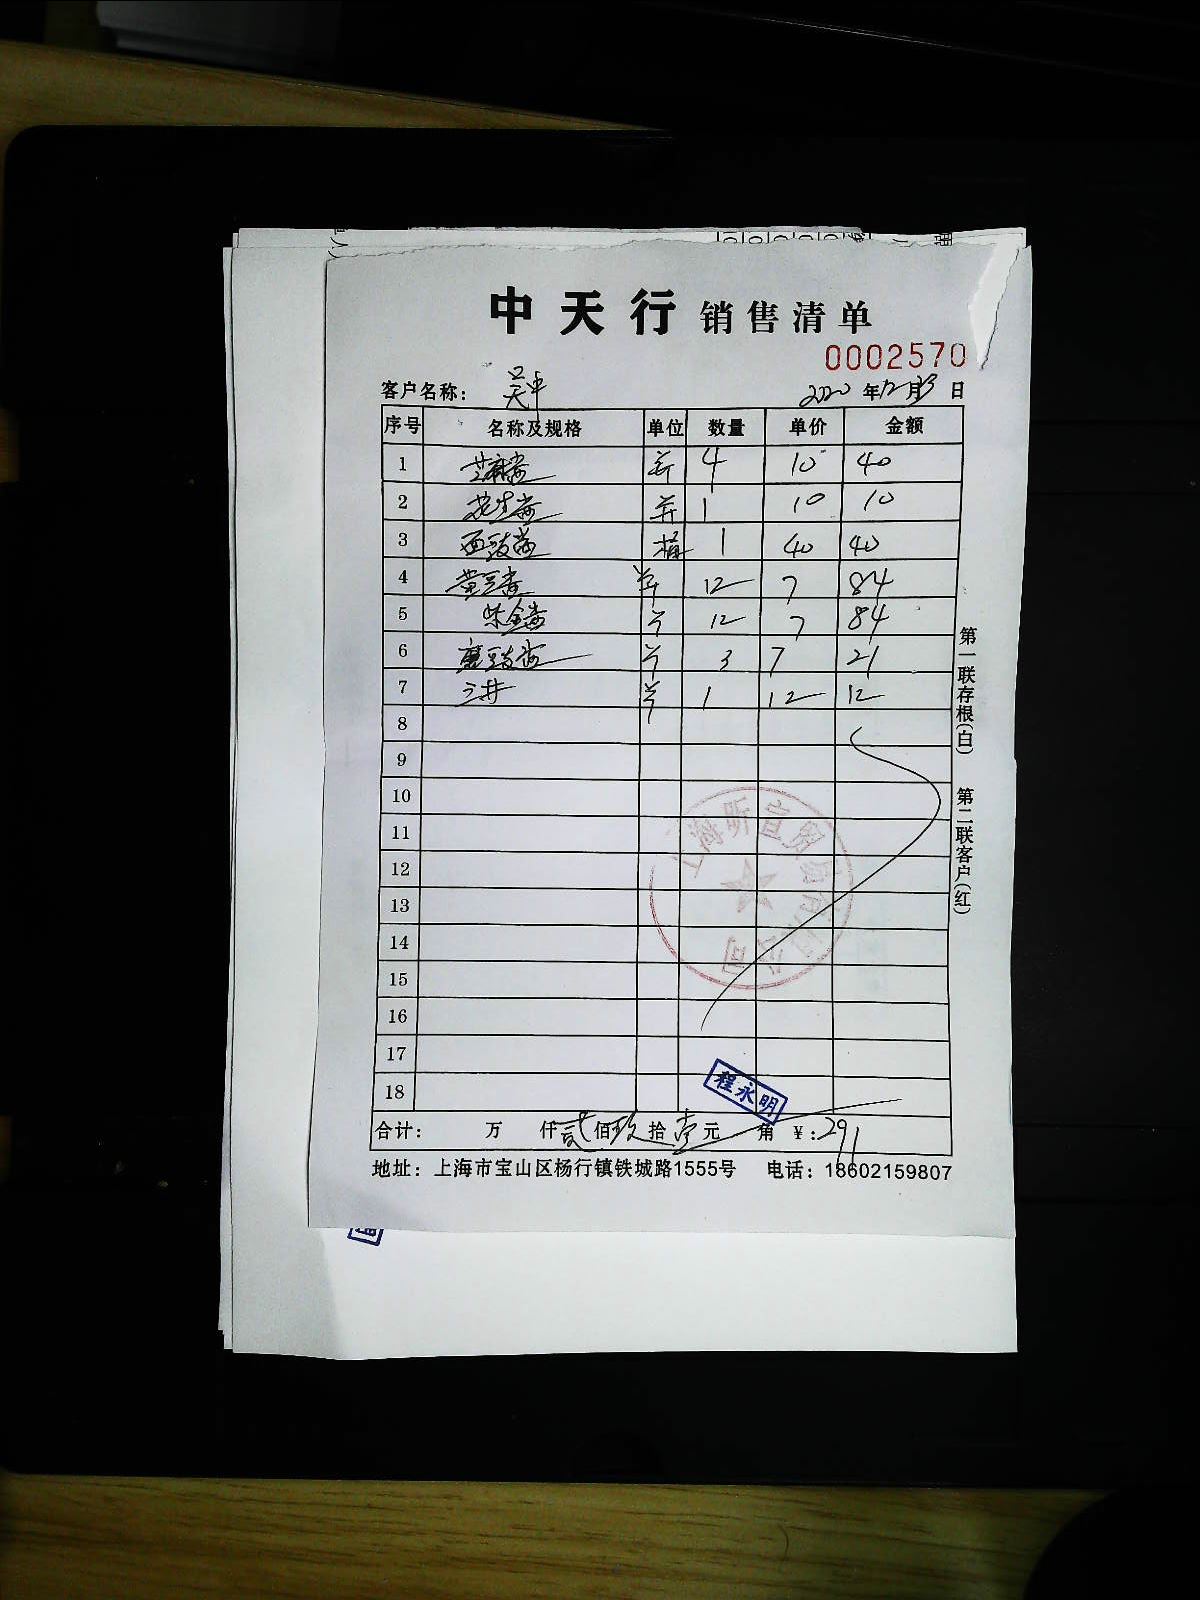 中天行 销售清单
0002570
客户名称： 吴中 2020 年 12 月 23 日
序号 名称及规格 单位 数量 单价 金额
1 芝麻酱 并 4 10 40
2 花生酱 并 1 10 10
3 西豉酱 桶 1 40 40
4 黄豆酱 并 12 7 84
5 12 7 84
6 3 7 21
7 三井 1 12 12
8
9
10
11
12
13
14
15
16
17
18
上海昕宜贸易有限公司
程永明
合计： 万 仟 贰 佰 玖 拾 壹 元 角 ￥：291
地址：上海市宝山区杨行镇铁城路1555号 电话：18602159807
第一联存根(白) 第二联客户(红)